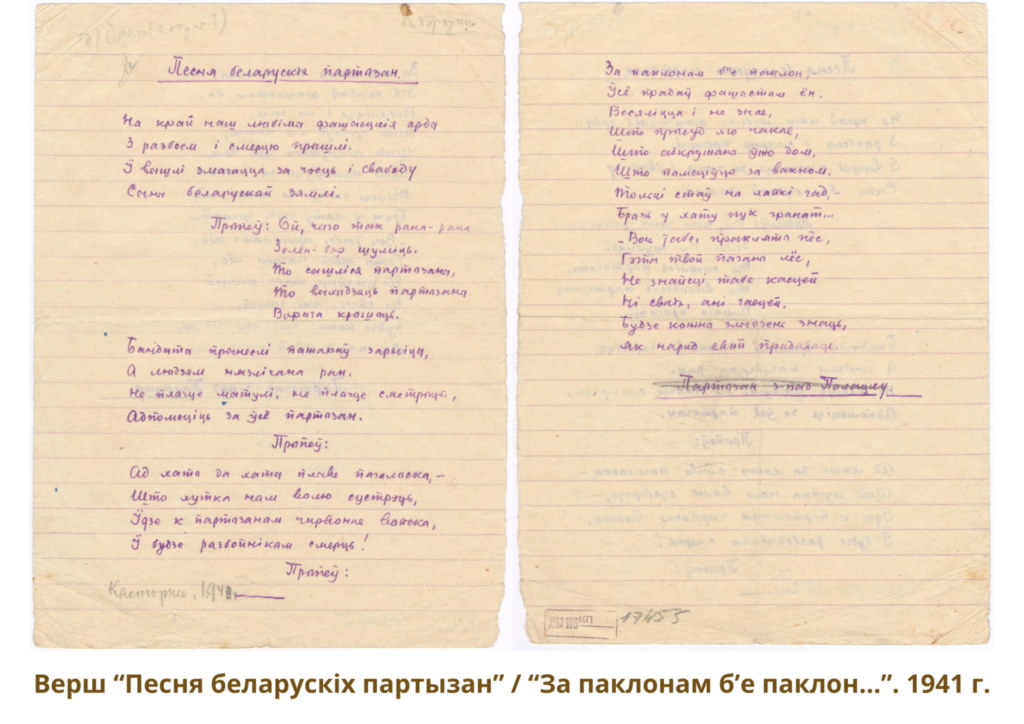 Песня беларускіх партызан.
На край наш любімы фашысцкія орды
З разбоем і смерцю прышлі.
І выйшлі змагацца за чэсць і свабоду
Сыны беларускай зямлі.
Прыпеў: Ой, чаго так рана-рана
Зелен-бор шуміць.
То сышліся партызаны,
То выходзяць партызаны
Ворага крышыць.
Бандыты прынеслі пажараў зарніцы,
А людзям нязлічана ран.
Не плачце матулі, не плачце сястрыцы,
Адпомсціць за ўсё партызан.
Прыпеў:
Ад хаты да хаты плыве пагалоска, –
Што хутка нам волю сустрэць,
Ідзе к партызанам чырвонае войска,
І будзе разбойнікам смерць!
Прыпеў:
Касторная, 194
За паклонам б'е паклон,
Ўсё прадаў фашыстам ён.
Весяліцца і не знае,
Што прысуд яго чакае,
Што абкружаны ўжо дом,
Што памсціўцы за вакном.
Толькі стаў на лапкі гад, –
Бразь у хату пук гранат...
– Вось табе, пракляты пёс,
Гэта твой паганы лёс,
Не знайсці табе касцей
Ні сваіх, ані гасцей.
Будзе кожны знаць,
Як народ свой прадаваць.
Партызан з-пад Полацку.
17453
Верш “Песня беларускіх партызан” / “За паклонам б’е паклон...”. 1941 г.